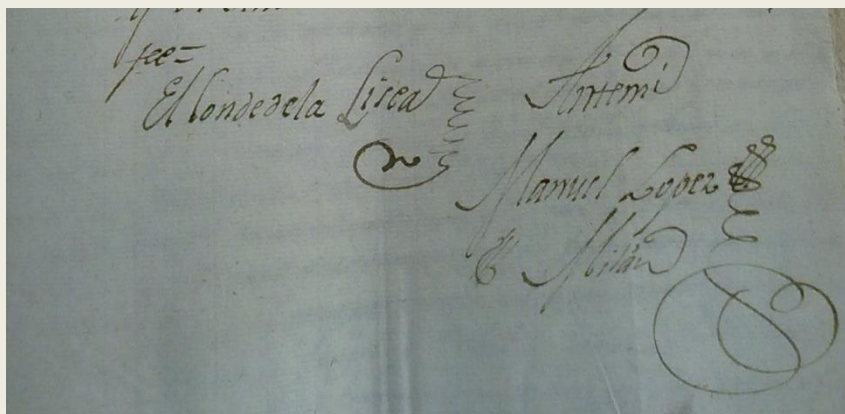 fee=
El Conde de la Lisea
Ante mi
Manuel Lopez
Milan